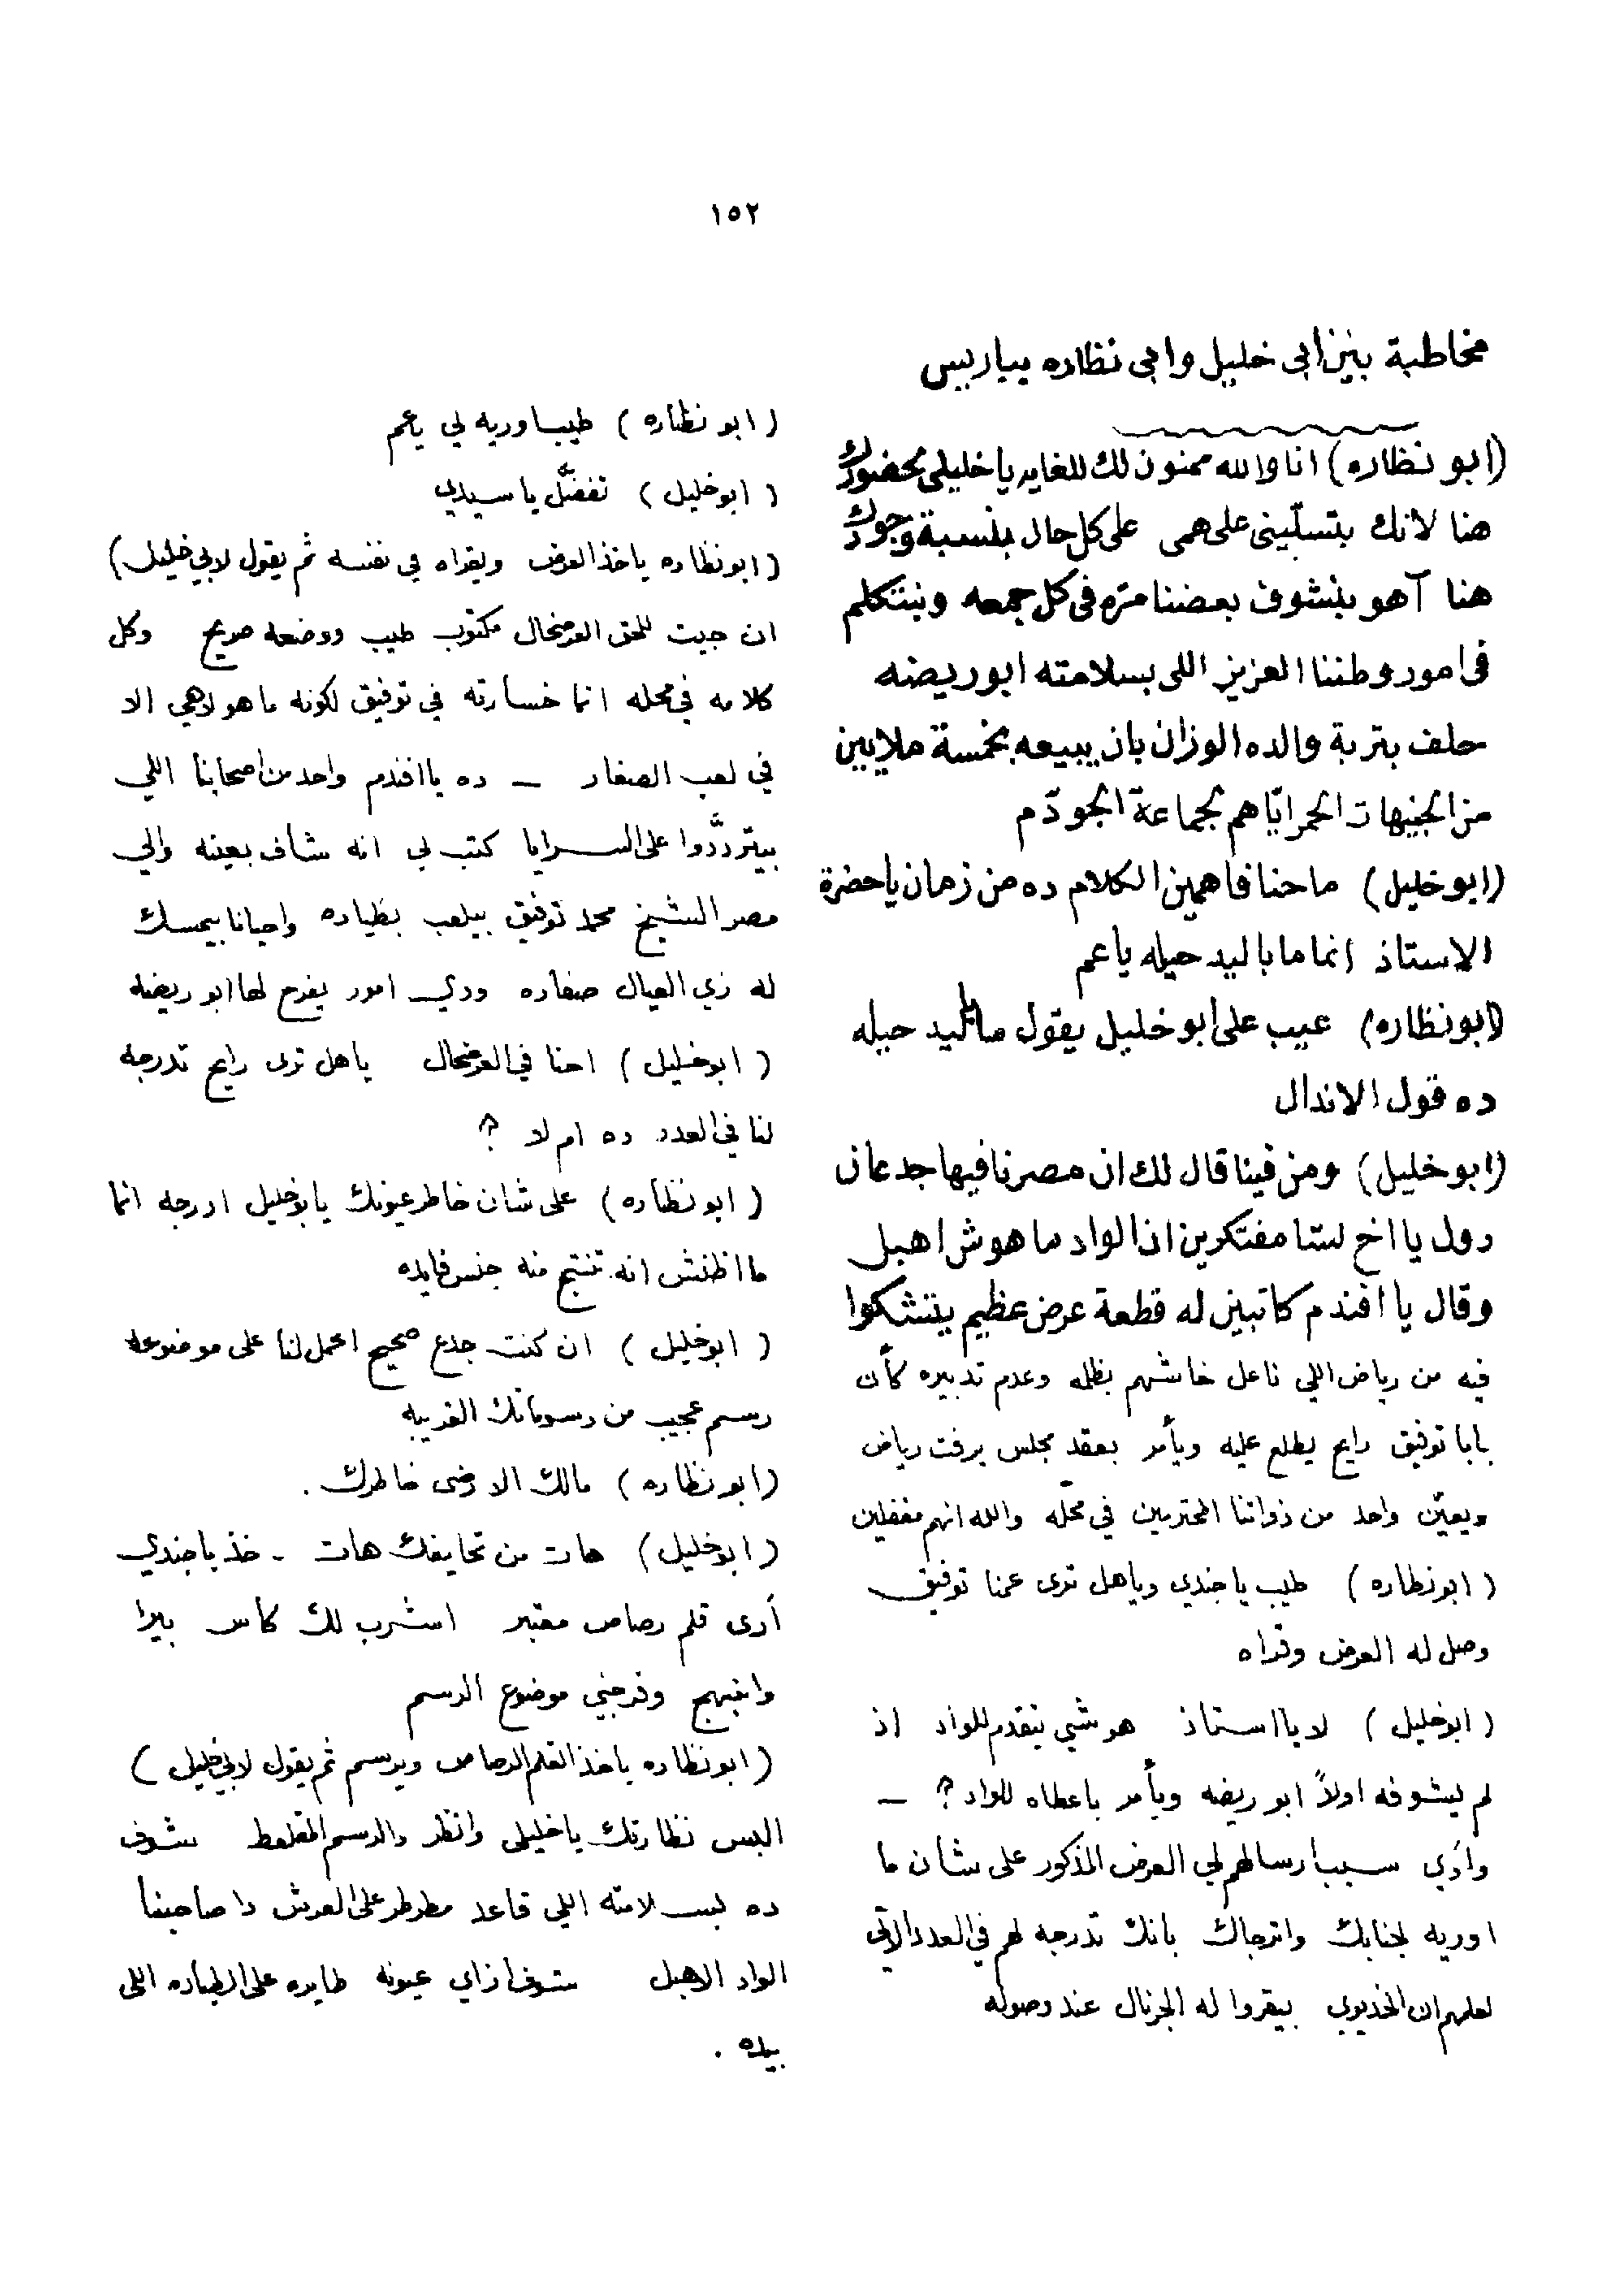 ١٥٢
مخاطبة بين ابى خليل وابى نظاره بباريس
(ابو نظاره) انا والله ممنون لك للغايه يا خليلى بحضورك
هنا لانك بتسلّينى على همى على كل حال بنسبة وجودك
هنا آهو بنشوف بعضنا مرّه فى كل جمعه ونبتكلم
فى امور وطننا العزيز اللى بسلامته ابو ريضه
حلف بتربة والده الوزان بان يبيعه بخمسة ملايين
من الجنيهات الحمر ايّاهم لجماعة الجودّم
(ابو خليل) ما حنا فاهمين الكلام ده من زمان يا حضرة
الاستاذ انما ما باليد حيله يا عم
(ابو نظاره) عيب على ابو خليل يقول ما باليد حيله
ده قول الاندال
(ابو خليل) ومن فينا قال لك ان مصرنا فيها جدعان
دول يا اخ لسّا مفتكرين ان الواد ما هوش اهبل
وقال يا افندم كاتبين له قطعة عرض عظيم بيتشكوا
فيه من رياض اللي ناعل خاشهم بظلمه وعدم تدبيره كأن
بابا توفيق رايح يطلع عليه ويأمر بعقد مجلس يرفت رياض
ويعيّن واحد من ذواتنا المحترمين في محلّه والله انهم مغفلين
(ابو نظاره) طيب يا جندي وياهل ترى عمنا توفيق
وصل له العرض وقراه
(ابو خليل) لا يا استاذ هو شي يتقدم للواد اذ
لم يشوفه اولاً ابو ريضه ويأمر باعطاه للواد؟ –
وادي سبب ارسالهم لي العرض المذكور على شان ما
اوريه لجنابك واترجاك بانك تدرجه لهم في العدد الآتي
لعلهم ان الخديوي بيقروا له الجرنال عند وصوله
(ابو نظاره) طيب اوريه لي يا عم
(ابو خليل) تفضّل يا سيدي
(ابو نظاره ياخذ العرض ويقراه في نفسه ثم يقول لابي خليل)
ان جيت للحق العرضحال مكتوب طيب ووضعه مريح وكل
كلامه في محله انما خسارته في توفيق لكونه ما هو لاهي الا
في لعب الصغار – ده يا افندم واحد من اصحابنا اللي
بيتردّدوا على السرايا كتب لي انه شاف بعينه والي
مصر الشيخ محمد توفيق بيلعب بطياره واحيانا بيمسك
له زي العيال صفاره ودي امور يفرح لها ابو ريضه
(ابو خليل) احنا في العرضحال ياهل ترى رايح تدرجه
لنا في العدد ده ام لا ؟
(ابو نظاره) على شان خاطر عيونك يا بو خليل ادرجه انما
ما اظنش انه تنتج منه جنس فايده
(ابو خليل) ان كنت جدع صحيح اعمل لنا على موضوعه
رسم عجيب من رسوماتك الغريبه
(ابو نظاره) مالك الا رضى خاطرك .
(ابو خليل) هات من تحايفك هات - خذ يا جندي
أدى قلم رصاص معتبر اشرب لك كاس بيرا
وابتهج وفرجني موضوع الرسم
(ابو نظاره ياخذ القلم الرصاص ويرسم ثم يقول لابي خليل)
البس نظارتك يا خليلى وانظر دالرسم المقلعط شوف
ده بسلامته اللي قاعد مطرطر على العرش دا صاحبنا
الواد الاهبل شوف ازاي عيونه طايره على الطياره اللى
بيده .